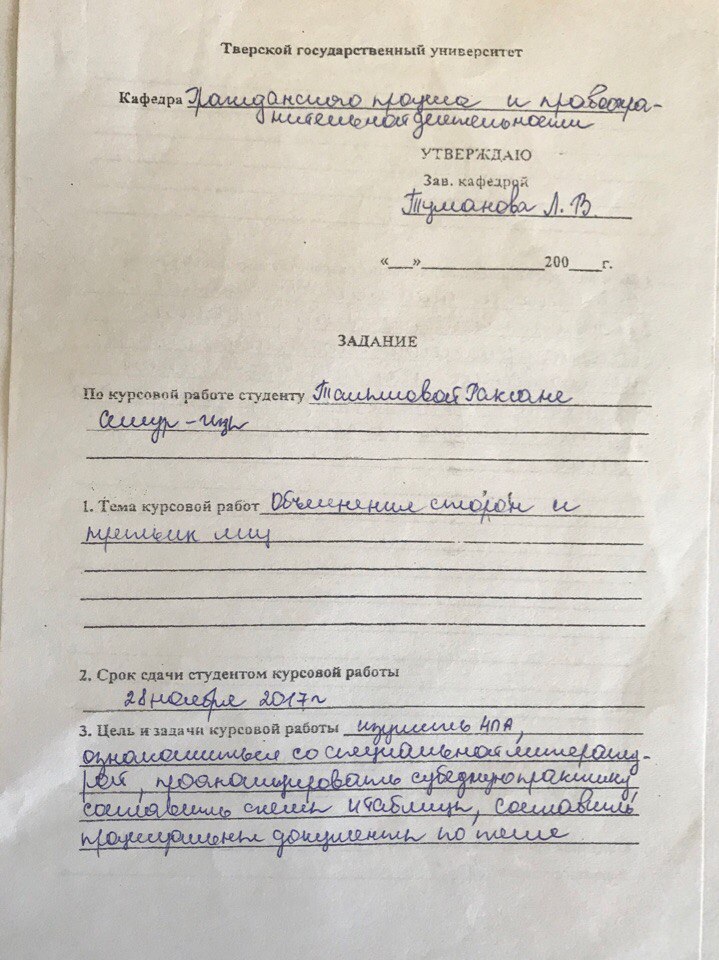 Тверской государственный университет
Кафедра Гражданского процесса и правоохра-
нительной деятельности
УТВЕРЖДАЮ
Зав. кафедрой
Туманова Л. В.
«___»____________200___г.
ЗАДАНИЕ
По курсовой работе студенту
1. Тема курсовой работ сторон и
третьих лиц
2. Срок сдачи студентом курсовой работы
28 ноября 2017г
3. Цель и задачи курсовой работы изучить НПА,
ознакомиться со специальной литерату-
рой, проанализировать судебную практику,
составить схемы и таблицы, составить
процессуальные документы по теме